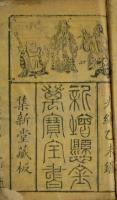 光緒乙未
新增懸金
萬寶全書
集新堂藏板